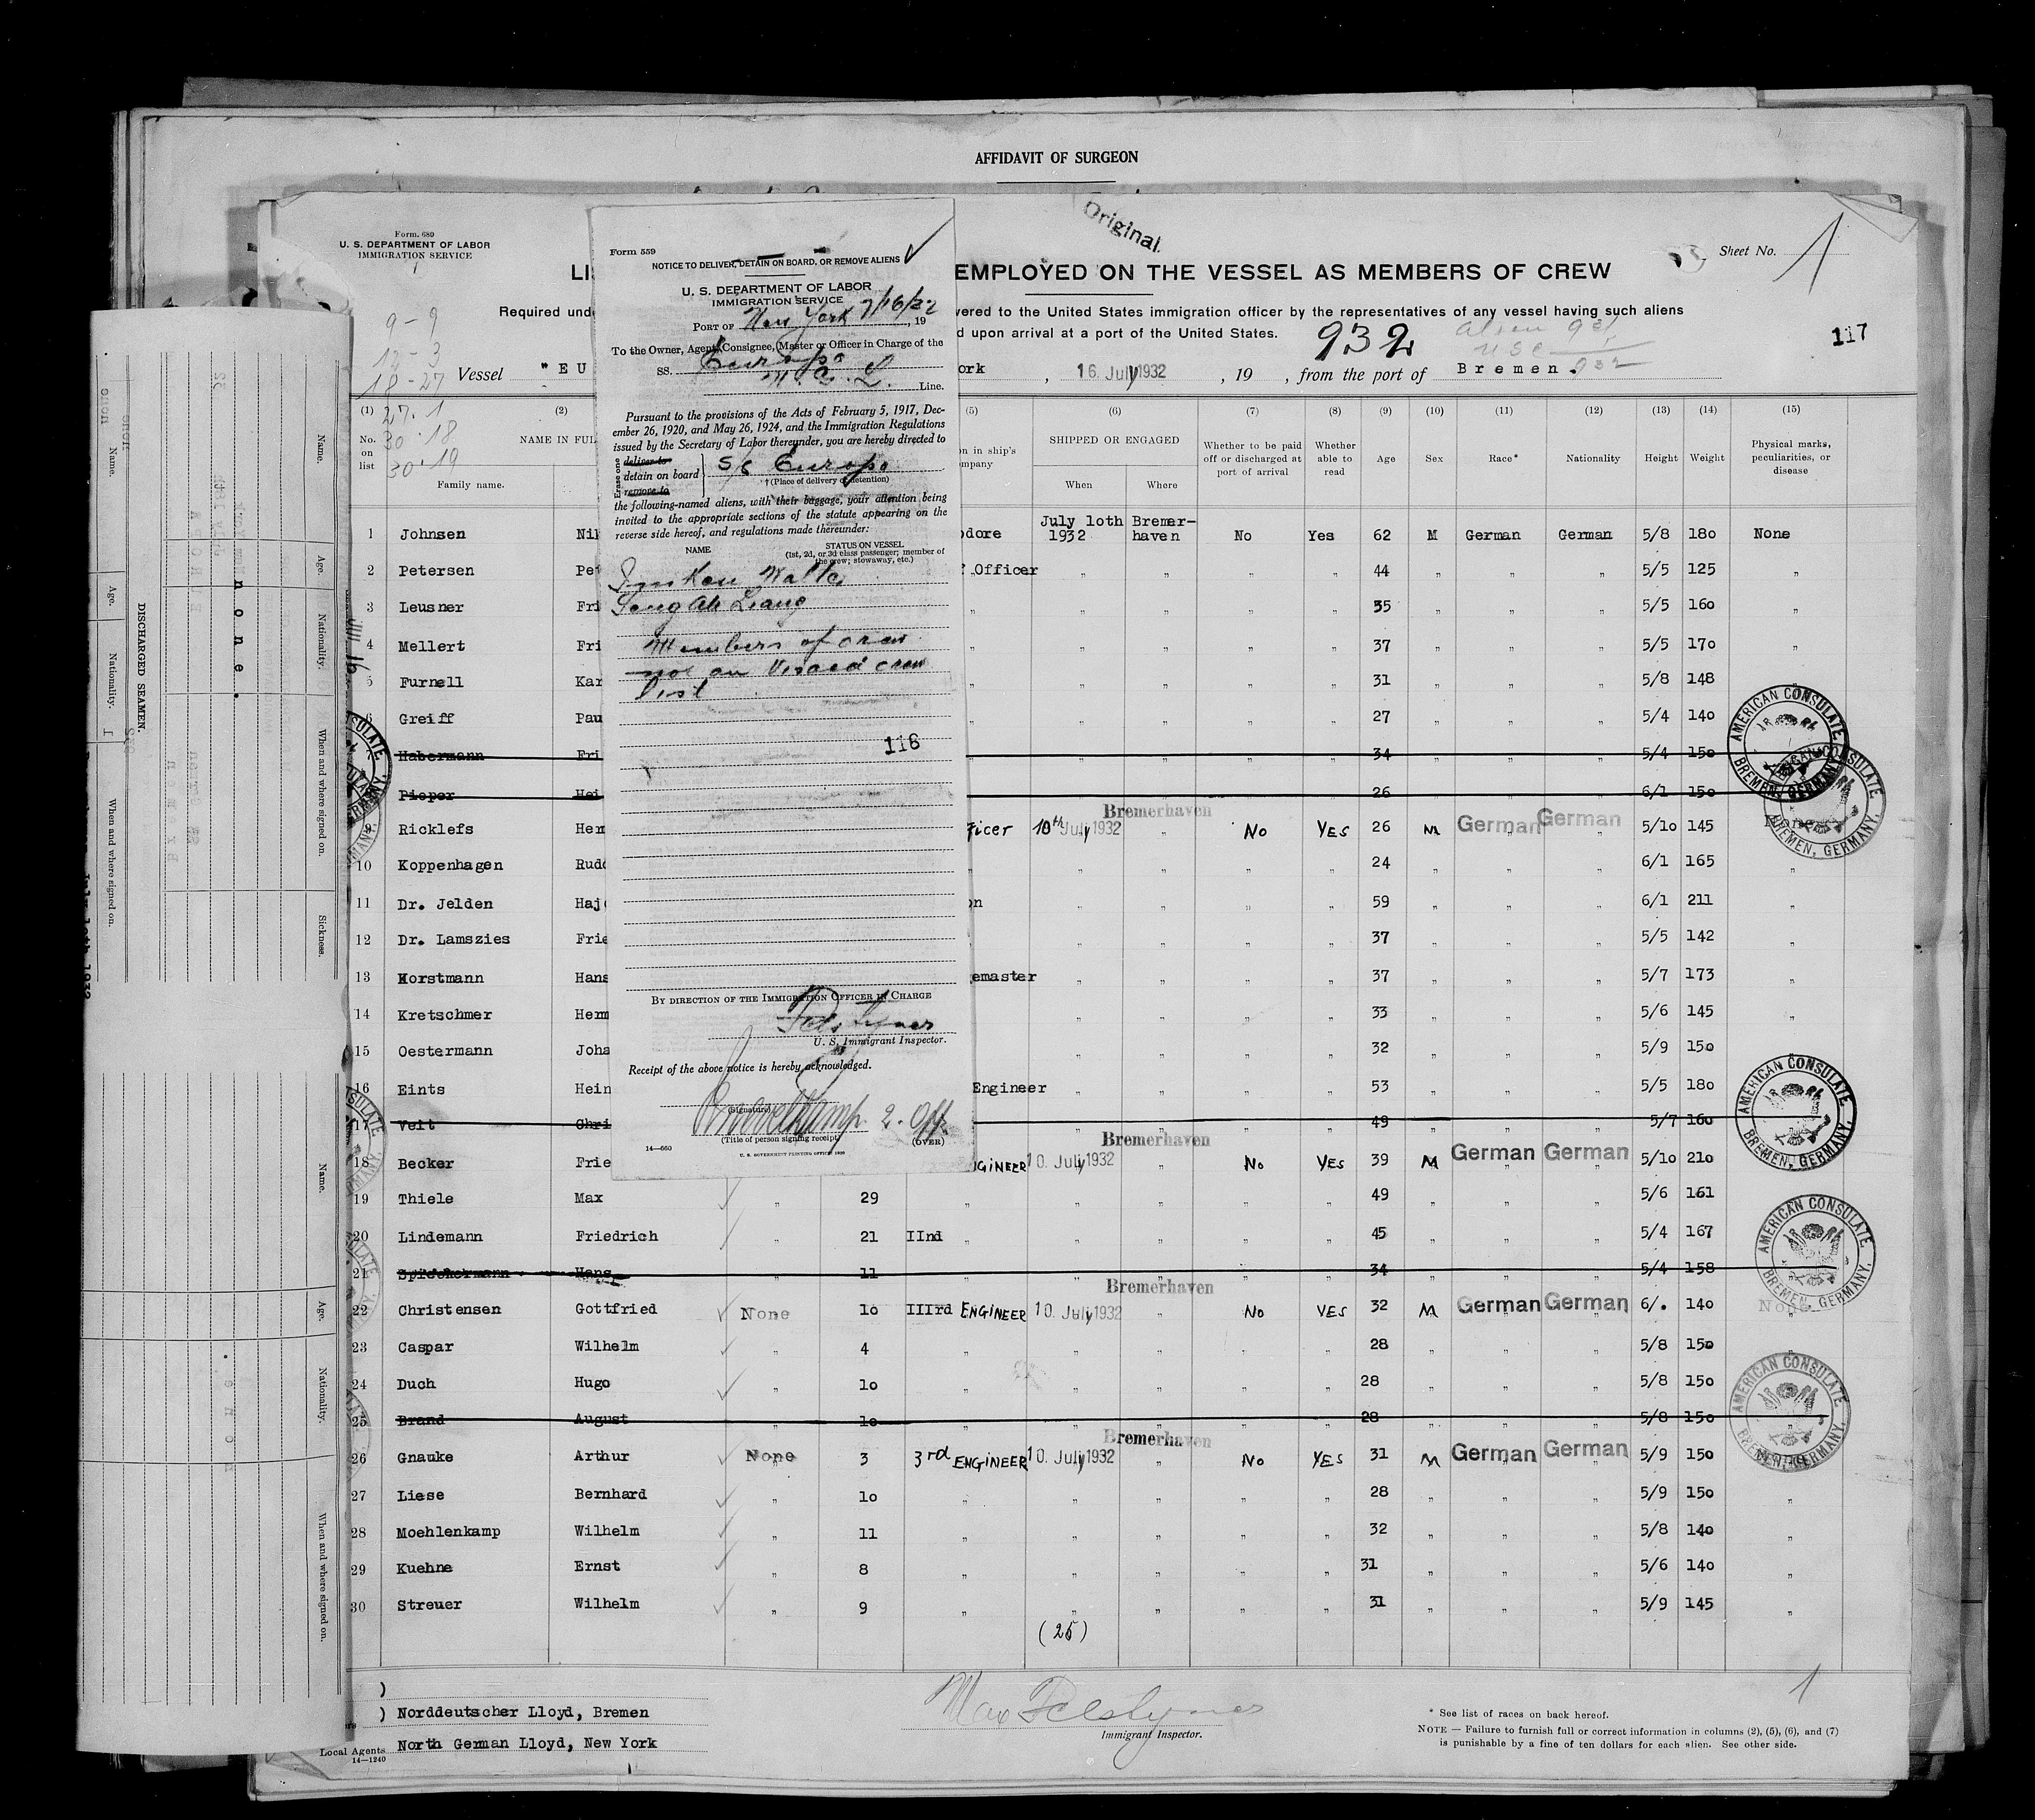 AFFIDAVIT OF SURGEON
Original.
Form. 689
U. S. DEPARTMENT OF LABOR
IMMIGRATION SERVICE
Sheet No. 1
EMPLOYED ON THE VESSEL AS MEMBERS OF CREW
Required und
vered to the United States immigration officer by the representatives of any vessel having such aliens
d upon arrival at a port of the United States.
932
117
9-9
12-3
18-27
27.1
30.18
30.19
Vessel "EU
ork, 16. July 1932, 19 , from the port of Bremen.
Form 559
NOTICE TO DELIVER, DETAIN ON BOARD, OR REMOVE ALIENS
U. S. DEPARTMENT OF LABOR
IMMIGRATION SERVICE
PORT OF New York 7/16/32, 19
To the Owner, Agent, Consignee, Master or Officer in Charge of the
SS. Europa
N. G. L. Line.
Pursuant to the provisions of the Acts of February 5, 1917, Dec-
ember 26, 1920, and May 26, 1924, and the Immigration Regulations
issued by the Secretary of Labor thereunder, you are hereby directed to
Erase one
deliver to
detain on board
remove to
SS Europa
† (Place of delivery or detention)
the following-named aliens, with their baggage, your attention being
invited to the appropriate sections of the statute appearing on the
reverse side hereof, and regulations made thereunder:
NAME
STATUS ON VESSEL
(1st, 2d, or 3d class passenger; member of
the crew; stowaway, etc.)
Walter
Liang
Members of crew
not on Visaed crew
list
116
BY DIRECTION OF THE IMMIGRATION OFFICER IN CHARGE
U. S. Immigrant Inspector.
Receipt of the above notice is hereby acknowledged.
2. Off.
(Signature)
(Title of person signing receipt)
(OVER)
14—660
U. S. GOVERNMENT PRINTING OFFICE
(1) (2) (5) (6) (7) (8) (9) (10) (11) (12) (13) (14) (15)
No. on list
NAME IN FUL
Family name.
n in ship's
mpany
SHIPPED OR ENGAGED
When
Where
Whether to be paid off or discharged at port of arrival
Whether able to read
Age
Sex
Race*
Nationality
Height
Weight
Physical marks, peculiarities, or disease
1 Johnsen Nil odore July 10th 1932 Bremer-haven No Yes 62 M German German 5/8 180 None
2 Petersen Pe Officer " " " " 44 " " " 5/5 125 "
3 Leusner Fri " " " " " 35 " " " 5/5 160 "
4 Mellert Fri " " " " " 37 " " " 5/5 170 "
5 Furnell Kar " " " " " 31 " " " 5/8 148
6 Greiff Pau " " " " " 27 " " " 5/4 140
7 Habermann Fri 34 5/4 150
Pieper Hei 26 6/1 150
9 Ricklefs Her ficer 10th July 1932 Bremerhaven " No YES 26 M German German 5/10 145
10 Koppenhagen Rudo " " " " 24 " " " 6/1 165 "
11 Dr. Jelden Hajo on " " " " 59 " " " 6/1 211 "
12 Dr. Lamszies Frie " " " " " 37 " " " 5/5 142 "
13 Horstmann Hans emaster " " " " 37 " " " 5/7 173 "
14 Kretschmer Herm " " " " " 33 " " " 5/6 145 "
15 Oestermann Joha " " " " " 32 " " " 5/9 150 "
16 Eints Hein Engineer " " " " 53 " " " 5/5 180
17 Veit Chri 49 5/7 160
18 Becker Frie NGINEER 10. July 1932 Bremerhaven " No YES 39 M German German 5/10 210
19 Thiele Max " 29 " " " " " 49 " " " 5/6 161
20 Lindemann Friedrich " 21 IInd " " " " " 45 " " " 5/4 167
21 Spieckermann Hans 11 34 5/4 158
22 Christensen Gottfried None 10 IIIrd ENGINEER 10. July 1932 Bremerhaven " No YES 32 M German German 6/. 140 None
23 Caspar Wilhelm " 4 " " " " " 28 " " " 5/8 150 "
24 Duch Hugo " 10 " " " " " 28 " " " 5/8 150
25 Brand August " 10 " " " " " 28 " " " 5/8 150 "
26 Gnauke Arthur None 3 3rd ENGINEER 10. July 1932 Bremerhaven " No YES 31 M German German 5/9 150
27 Liese Bernhard " 10 " " " " " 28 " " " 5/9 150 "
28 Moehlenkamp Wilhelm " 11 " " " " " 32 " " " 5/8 140 "
29 Kuehne Ernst " 8 " " " " " 31 " " " 5/6 140 "
30 Streuer Wilhelm " 9 " " " " " 31 " " " 5/9 145 "
(25)
AMERICAN CONSULATE
BREMEN, GERMANY.
AMERICAN CONSULATE
BREMEN, GERMANY.
AMERICAN CONSULATE
BREMEN, GERMANY.
AMERICAN CONSULATE
BREMEN, GERMANY.
AMERICAN CONSULATE
BREMEN, GERMANY.
) Norddeutscher Lloyd, Bremen
Local Agents North German Lloyd, New York
14—1240
Max
Immigrant Inspector.
1
* See list of races on back hereof.
NOTE — Failure to furnish full or correct information in columns (2), (5), (6), and (7)
is punishable by a fine of ten dollars for each alien. See other side.
DISCHARGED SEAMEN.
Name.
Age.
Nationality.
When and where signed on.
Name.
Age.
Nationality.
When and where signed on.
Sickness.
none.
Name.
Age.
Nationality.
When and where signed on.